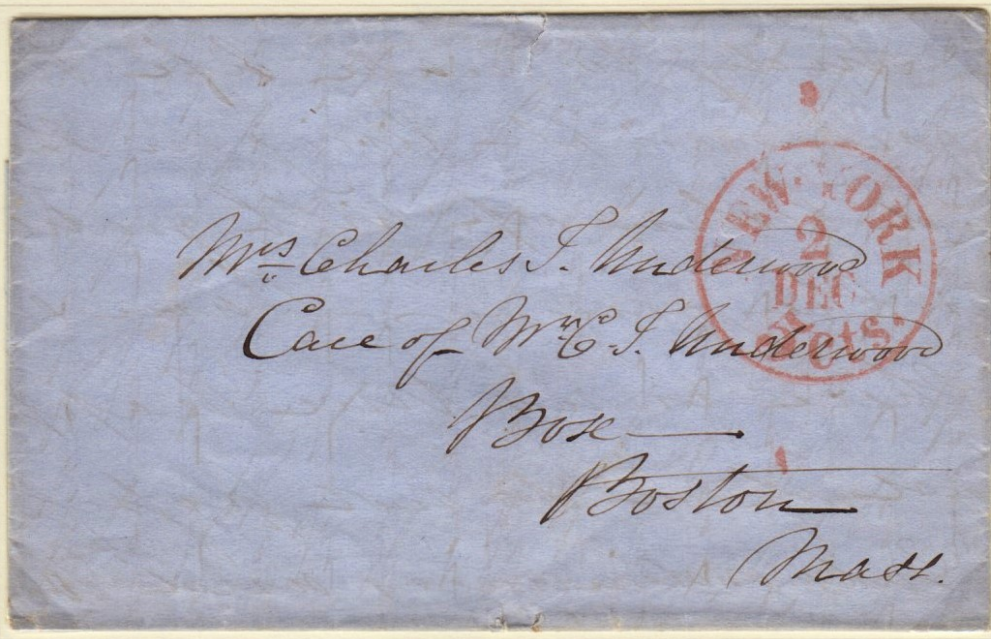 NEW-YORK
2
DEC
cts.
Mrs Charles T. Underwood
Care of Mr C. T. Underwood
Box
Boston
Mass.